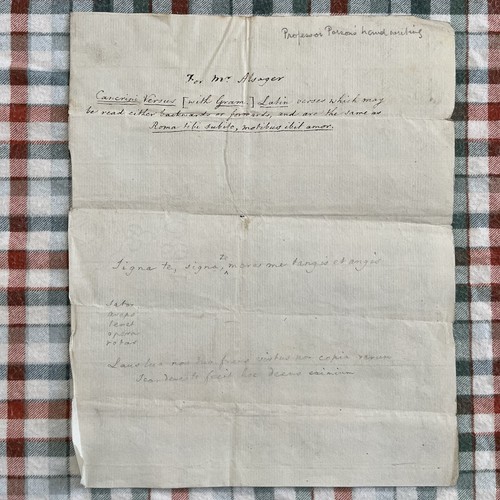 Professor Porson's handwriting
For Mr Alsager
Cancrini Versus [with Gram.] Latin verses which may
be read either backwards or forwards, and are the same as
Roma tibi subito, motibus ibit amor.
Signa te, signa, temere me tangis et angis
sator
arepo
tenet
opera
rotas
Laus tua non tua fraus virtus non copia rerum
Scandere te fecit hoc decus eximium